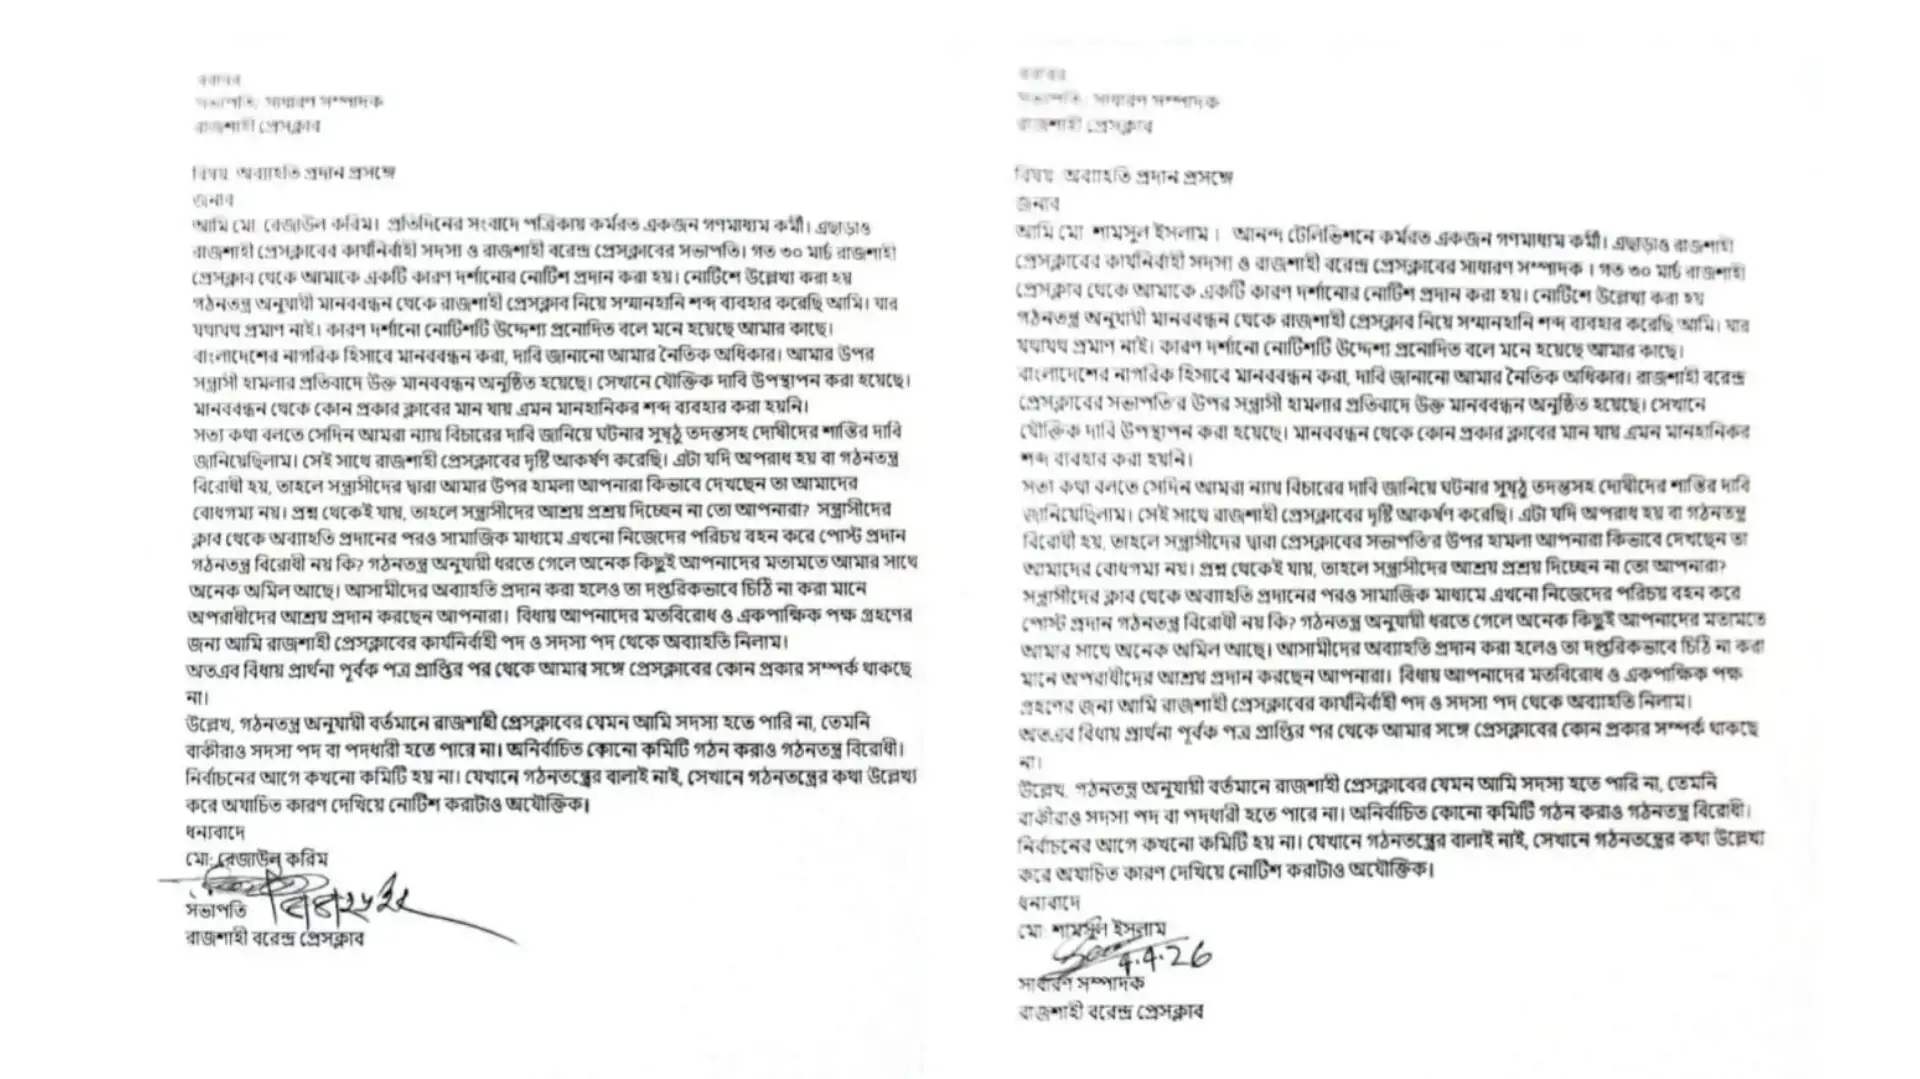 বরাবর
সভাপতি/ সাধারণ সম্পাদক
রাজশাহী প্রেসক্লাব
বিষয়: অব্যাহতি প্রদান প্রসঙ্গে
জনাব
আমি মো. রেজাউল করিম। প্রতিদিনের সংবাদে পত্রিকায় কর্মরত একজন গণমাধ্যম কর্মী। এছাড়াও
রাজশাহী প্রেসক্লাবের কার্যনির্বাহী সদস্য ও রাজশাহী বরেন্দ্র প্রেসক্লাবের সভাপতি। গত ৩০ মার্চ রাজশাহী
প্রেসক্লাব থেকে আমাকে একটি কারণ দর্শানোর নোটিশ প্রদান করা হয়। নোটিশে উল্লেখ্য করা হয়
গঠনতন্ত্র অনুযায়ী মানববন্ধন থেকে রাজশাহী প্রেসক্লাব নিয়ে সম্মানহানি শব্দ ব্যবহার করেছি আমি। যার
যথাযথ প্রমাণ নাই। কারণ দর্শানো নোটিশটি উদ্দেশ্য প্রনোদিত বলে মনে হয়েছে আমার কাছে।
বাংলাদেশের নাগরিক হিসাবে মানববন্ধন করা, দাবি জানানো আমার নৈতিক অধিকার। আমার উপর
সন্ত্রাসী হামলার প্রতিবাদে উক্ত মানববন্ধন অনুষ্ঠিত হয়েছে। সেখানে যৌক্তিক দাবি উপস্থাপন করা হয়েছে।
মানববন্ধন থেকে কোন প্রকার ক্লাবের মান যায় এমন মানহানিকর শব্দ ব্যবহার করা হয়নি।
সত্য কথা বলতে সেদিন আমরা ন্যায় বিচারের দাবি জানিয়ে ঘটনার সুষ্ঠু তদন্তসহ দোষীদের শাস্তির দাবি
জানিয়েছিলাম। সেই সাথে রাজশাহী প্রেসক্লাবের দৃষ্টি আকর্ষণ করেছি। এটা যদি অপরাধ হয় বা গঠনতন্ত্র
বিরোধী হয়, তাহলে সন্ত্রাসীদের দ্বারা আমার উপর হামলা আপনারা কিভাবে দেখছেন তা আমাদের
বোধগম্য নয়। প্রশ্ন থেকেই যায়, তাহলে সন্ত্রাসীদের আশ্রয় প্রশ্রয় দিচ্ছেন না তো আপনারা? সন্ত্রাসীদের
ক্লাব থেকে অব্যাহতি প্রদানের পরও সামাজিক মাধ্যমে এখনো নিজেদের পরিচয় বহন করে পোস্ট প্রদান
গঠনতন্ত্র বিরোধী নয় কি? গঠনতন্ত্র অনুযায়ী ধরতে গেলে অনেক কিছুই আপনাদের মতামতে আমার সাথে
অনেক অমিল আছে। আসামীদের অব্যাহতি প্রদান করা হলেও তা দপ্তরিকভাবে চিঠি না করা মানে
অপরাধীদের আশ্রয় প্রদান করছেন আপনারা। বিধায় আপনাদের মতবিরোধ ও একপাক্ষিক পক্ষ গ্রহণের
জন্য আমি রাজশাহী প্রেসক্লাবের কার্যনির্বাহী পদ ও সদস্য পদ থেকে অব্যাহতি নিলাম।
অতএব বিধায় প্রার্থনা পূর্বক পত্র প্রাপ্তির পর থেকে আমার সঙ্গে প্রেসক্লাবের কোন প্রকার সম্পর্ক থাকছে
না।
উল্লেখ, গঠনতন্ত্র অনুযায়ী বর্তমানে রাজশাহী প্রেসক্লাবের যেমন আমি সদস্য হতে পারি না, তেমনি
বাকীরাও সদস্য পদ বা পদধারী হতে পারে না। অনির্বাচিত কোনো কমিটি গঠন করাও গঠনতন্ত্র বিরোধী।
নির্বাচনের আগে কখনো কমিটি হয় না। যেখানে গঠনতন্ত্রের বালাই নাই, সেখানে গঠনতন্ত্রের কথা উল্লেখ্য
করে অযাচিত কারণ দেখিয়ে নোটিশ করাটাও অযৌক্তিক।
ধন্যবাদে
মো: রেজাউল করিম
সভাপতি
রাজশাহী বরেন্দ্র প্রেসক্লাব
বরাবর
সভাপতি/ সাধারণ সম্পাদক
রাজশাহী প্রেসক্লাব
বিষয়: অব্যাহতি প্রদান প্রসঙ্গে
জনাব
আমি মো: শামসুল ইসলাম। আনন্দ টেলিভিশনে কর্মরত একজন গণমাধ্যম কর্মী। এছাড়াও রাজশাহী
প্রেসক্লাবের কার্যনির্বাহী সদস্য ও রাজশাহী বরেন্দ্র প্রেসক্লাবের সাধারণ সম্পাদক । গত ৩০ মার্চ রাজশাহী
প্রেসক্লাব থেকে আমাকে একটি কারণ দর্শানোর নোটিশ প্রদান করা হয়। নোটিশে উল্লেখ্য করা হয়
গঠনতন্ত্র অনুযায়ী মানববন্ধন থেকে রাজশাহী প্রেসক্লাব নিয়ে সম্মানহানি শব্দ ব্যবহার করেছি আমি। যার
যথাযথ প্রমাণ নাই। কারণ দর্শানো নোটিশটি উদ্দেশ্য প্রনোদিত বলে মনে হয়েছে আমার কাছে।
বাংলাদেশের নাগরিক হিসাবে মানববন্ধন করা, দাবি জানানো আমার নৈতিক অধিকার। রাজশাহী বরেন্দ্র
প্রেসক্লাবের সভাপতি'র উপর সন্ত্রাসী হামলার প্রতিবাদে উক্ত মানববন্ধন অনুষ্ঠিত হয়েছে। সেখানে
যৌক্তিক দাবি উপস্থাপন করা হয়েছে। মানববন্ধন থেকে কোন প্রকার ক্লাবের মান যায় এমন মানহানিকর
শব্দ ব্যবহার করা হয়নি।
সত্য কথা বলতে সেদিন আমরা ন্যায় বিচারের দাবি জানিয়ে ঘটনার সুষ্ঠু তদন্তসহ দোষীদের শাস্তির দাবি
জানিয়েছিলাম। সেই সাথে রাজশাহী প্রেসক্লাবের দৃষ্টি আকর্ষণ করেছি। এটা যদি অপরাধ হয় বা গঠনতন্ত্র
বিরোধী হয়, তাহলে সন্ত্রাসীদের দ্বারা প্রেসক্লাবের সভাপতি'র উপর হামলা আপনারা কিভাবে দেখছেন তা
আমাদের বোধগম্য নয়। প্রশ্ন থেকেই যায়, তাহলে সন্ত্রাসীদের আশ্রয় প্রশ্রয় দিচ্ছেন না তো আপনারা?
সন্ত্রাসীদের ক্লাব থেকে অব্যাহতি প্রদানের পরও সামাজিক মাধ্যমে এখনো নিজেদের পরিচয় বহন করে
পোস্ট প্রদান গঠনতন্ত্র বিরোধী নয় কি? গঠনতন্ত্র অনুযায়ী ধরতে গেলে অনেক কিছুই আপনাদের মতামতে
আমার সাথে অনেক অমিল আছে। আসামীদের অব্যাহতি প্রদান করা হলেও তা দপ্তরিকভাবে চিঠি না করা
মানে অপরাধীদের আশ্রয় প্রদান করছেন আপনারা। বিধায় আপনাদের মতবিরোধ ও একপাক্ষিক পক্ষ
গ্রহণের জন্য আমি রাজশাহী প্রেসক্লাবের কার্যনির্বাহী পদ ও সদস্য পদ থেকে অব্যাহতি নিলাম।
অতএব বিধায় প্রার্থনা পূর্বক পত্র প্রাপ্তির পর থেকে আমার সঙ্গে প্রেসক্লাবের কোন প্রকার সম্পর্ক থাকছে
না।
উল্লেখ, গঠনতন্ত্র অনুযায়ী বর্তমানে রাজশাহী প্রেসক্লাবের যেমন আমি সদস্য হতে পারি না, তেমনি
বাকীরাও সদস্য পদ বা পদধারী হতে পারে না। অনির্বাচিত কোনো কমিটি গঠন করাও গঠনতন্ত্র বিরোধী।
নির্বাচনের আগে কখনো কমিটি হয় না। যেখানে গঠনতন্ত্রের বালাই নাই, সেখানে গঠনতন্ত্রের কথা উল্লেখ্য
করে অযাচিত কারণ দেখিয়ে নোটিশ করাটাও অযৌক্তিক।
ধন্যবাদে
মো: শামসুল ইসলাম
4.4.26
সাধারণ সম্পাদক
রাজশাহী বরেন্দ্র প্রেসক্লাব